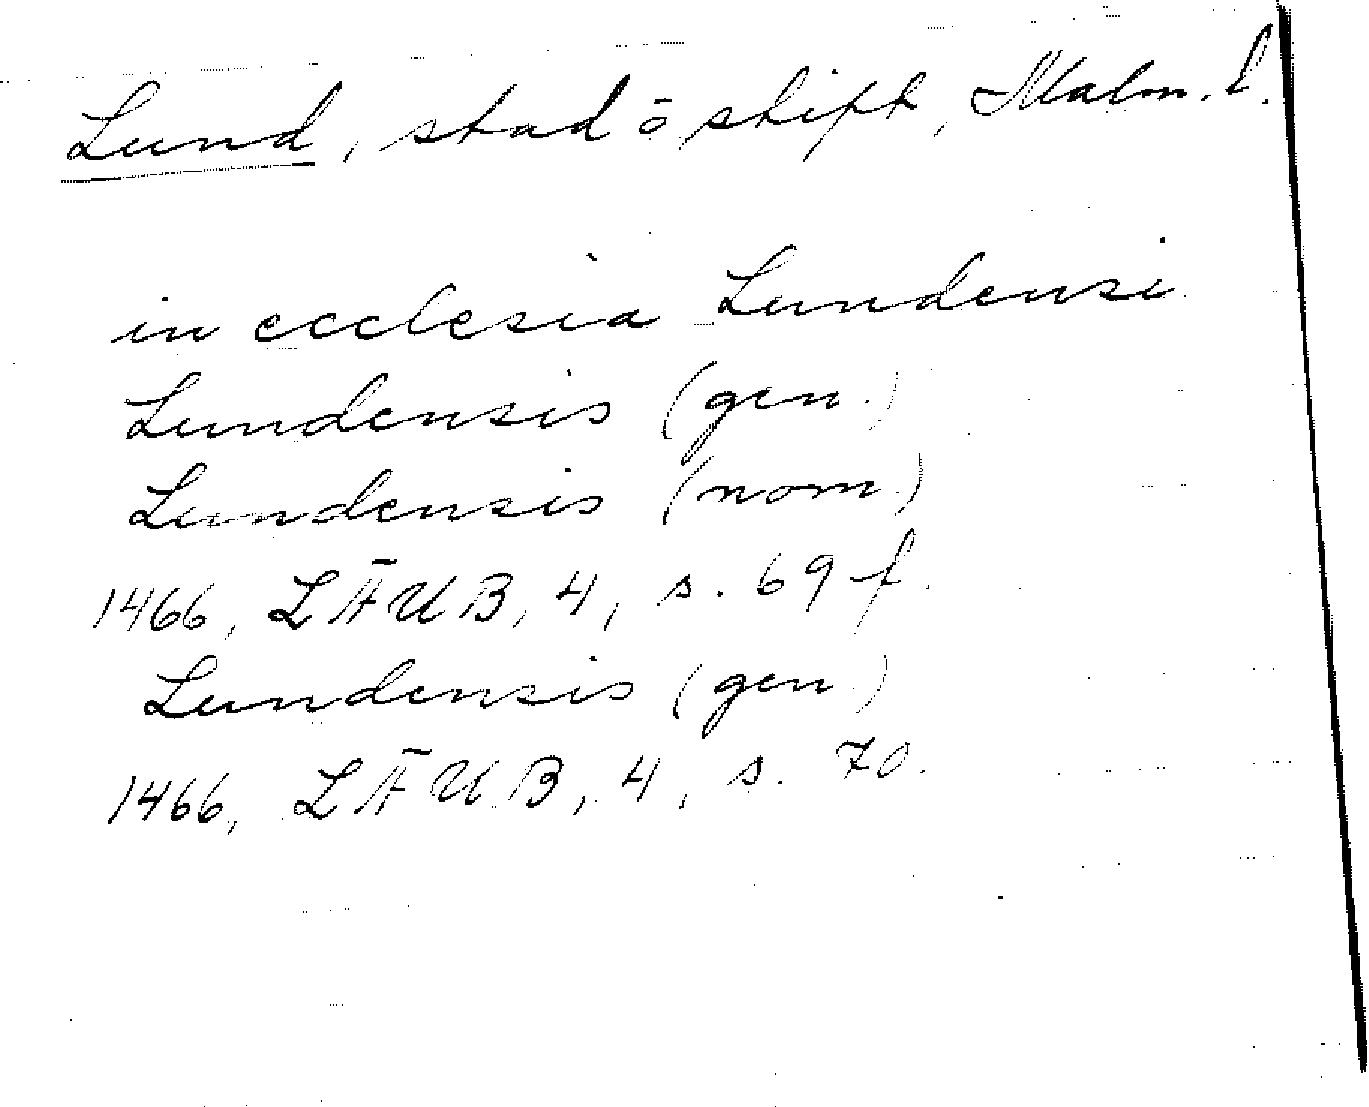 Lund, stad o stift, Malm. l.
in ecclesia Lundensi
Lundensis (gen.)
Lundensis (nom.)
1466, LÄUB, 4, s. 69 f.
Lundensis (gen.)
1466, LÄUB, 4, s. 70.